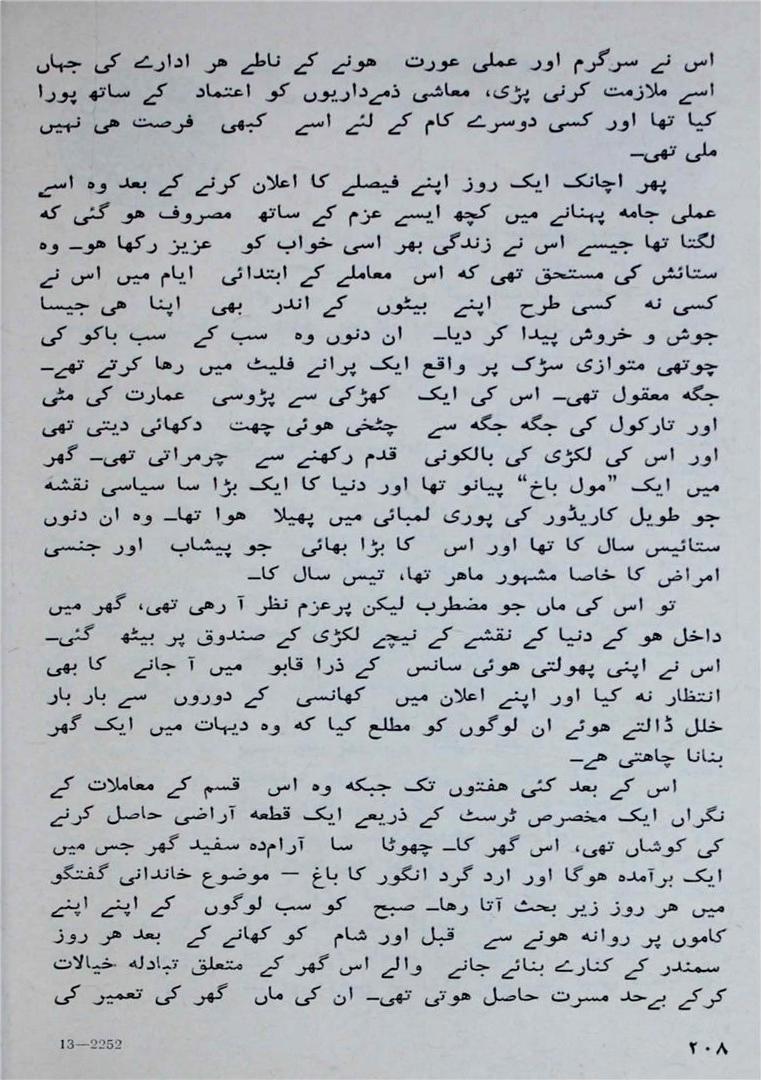 اس نے سرگرم اور عملی عورت ھونے کے ناطے ھر ادارے کی جہاں
اسے ملازمت کرنی پڑی، معاشی ذمےداریوں کو اعتماد کے ساتھ پورا
کیا تھا اور کسی دوسرے کام کے لئے اسے کبھی فرصت ھی نہیں
ملی تھی۔
پھر اچانک ایک روز اپنے فیصلے کا اعلان کرنے کے بعد وہ اسے
عملی جامہ پہنانے میں کچھ ایسے عزم کے ساتھ مصروف ھو گئی کہ
لگتا تھا جیسے اس نے زندگی بھر اسی خواب کو عزیز رکھا ھو۔ وہ
ستائش کی مستحق تھی کہ اس معاملے کے ابتدائی ایام میں اس نے
کسی نہ کسی طرح اپنے بیٹوں کے اندر بھی اپنا ھی جیسا
جوش و خروش پیدا کر دیا۔ ان دنوں وہ سب کے سب باکو کی
چوتھی متوازی سڑک پر واقع ایک پرانے فلیٹ میں رھا کرتے تھے۔
جگہ معقول تھی۔ اس کی ایک کھڑکی سے پڑوسی عمارت کی مٹی
اور تارکول کی جگہ جگہ سے چٹخی ھوئی چھت دکھائی دیتی تھی
اور اس کی لکڑی کی بالکونی قدم رکھنے سے چرمراتی تھی۔ گھر
میں ایک ”مول باخ“ پیانو تھا اور دنیا کا ایک بڑا سا سیاسی نقشہ
جو طویل کاریڈور کی پوری لمبائی میں پھیلا ھوا تھا۔ وہ ان دنوں
ستائیس سال کا تھا اور اس کا بڑا بھائی جو پیشاب اور جنسی
امراض کا خاصا مشہور ماھر تھا، تیس سال کا۔
تو اس کی ماں جو مضطرب لیکن پرعزم نظر آ رھی تھی، گھر میں
داخل ھو کے دنیا کے نقشے کے نیچے لکڑی کے صندوق پر بیٹھ گئی۔
اس نے اپنی پھولتی ھوئی سانس کے ذرا قابو میں آ جانے کا بھی
انتظار نہ کیا اور اپنے اعلان میں کھانسی کے دوروں سے بار بار
خلل ڈالتے ھوئے ان لوگوں کو مطلع کیا کہ وہ دیہات میں ایک گھر
بنانا چاھتی ھے۔
اس کے بعد کئی ھفتوں تک جبکہ وہ اس قسم کے معاملات کے
نگراں ایک مخصرص ٹرسٹ کے ذریعے ایک قطعہ آراضی حاصل کرنے
کی کوشاں تھی، اس گھر کا۔ چھوٹا سا آرام‌دہ سفید گھر جس میں
ایک برآمدہ ھوگا اور ارد گرد انگور کا باغ — موضوع خاندانی گفتگو
میں ھر روز زیر بحث آتا رھا۔ صبح کو سب لوگوں کے اپنے اپنے
کاموں پر روانہ ھونے سے قبل اور شام کو کھانے کے بعد ھر روز
سمندر کے کنارے بنائے جانے والے اس گھر کے متعلق تبادلہ خیالات
کرکے بےحد مسرت حاصل ھوتی تھی۔ ان کی ماں گھر کی تعمیر کی
13—2252
۲۰۸